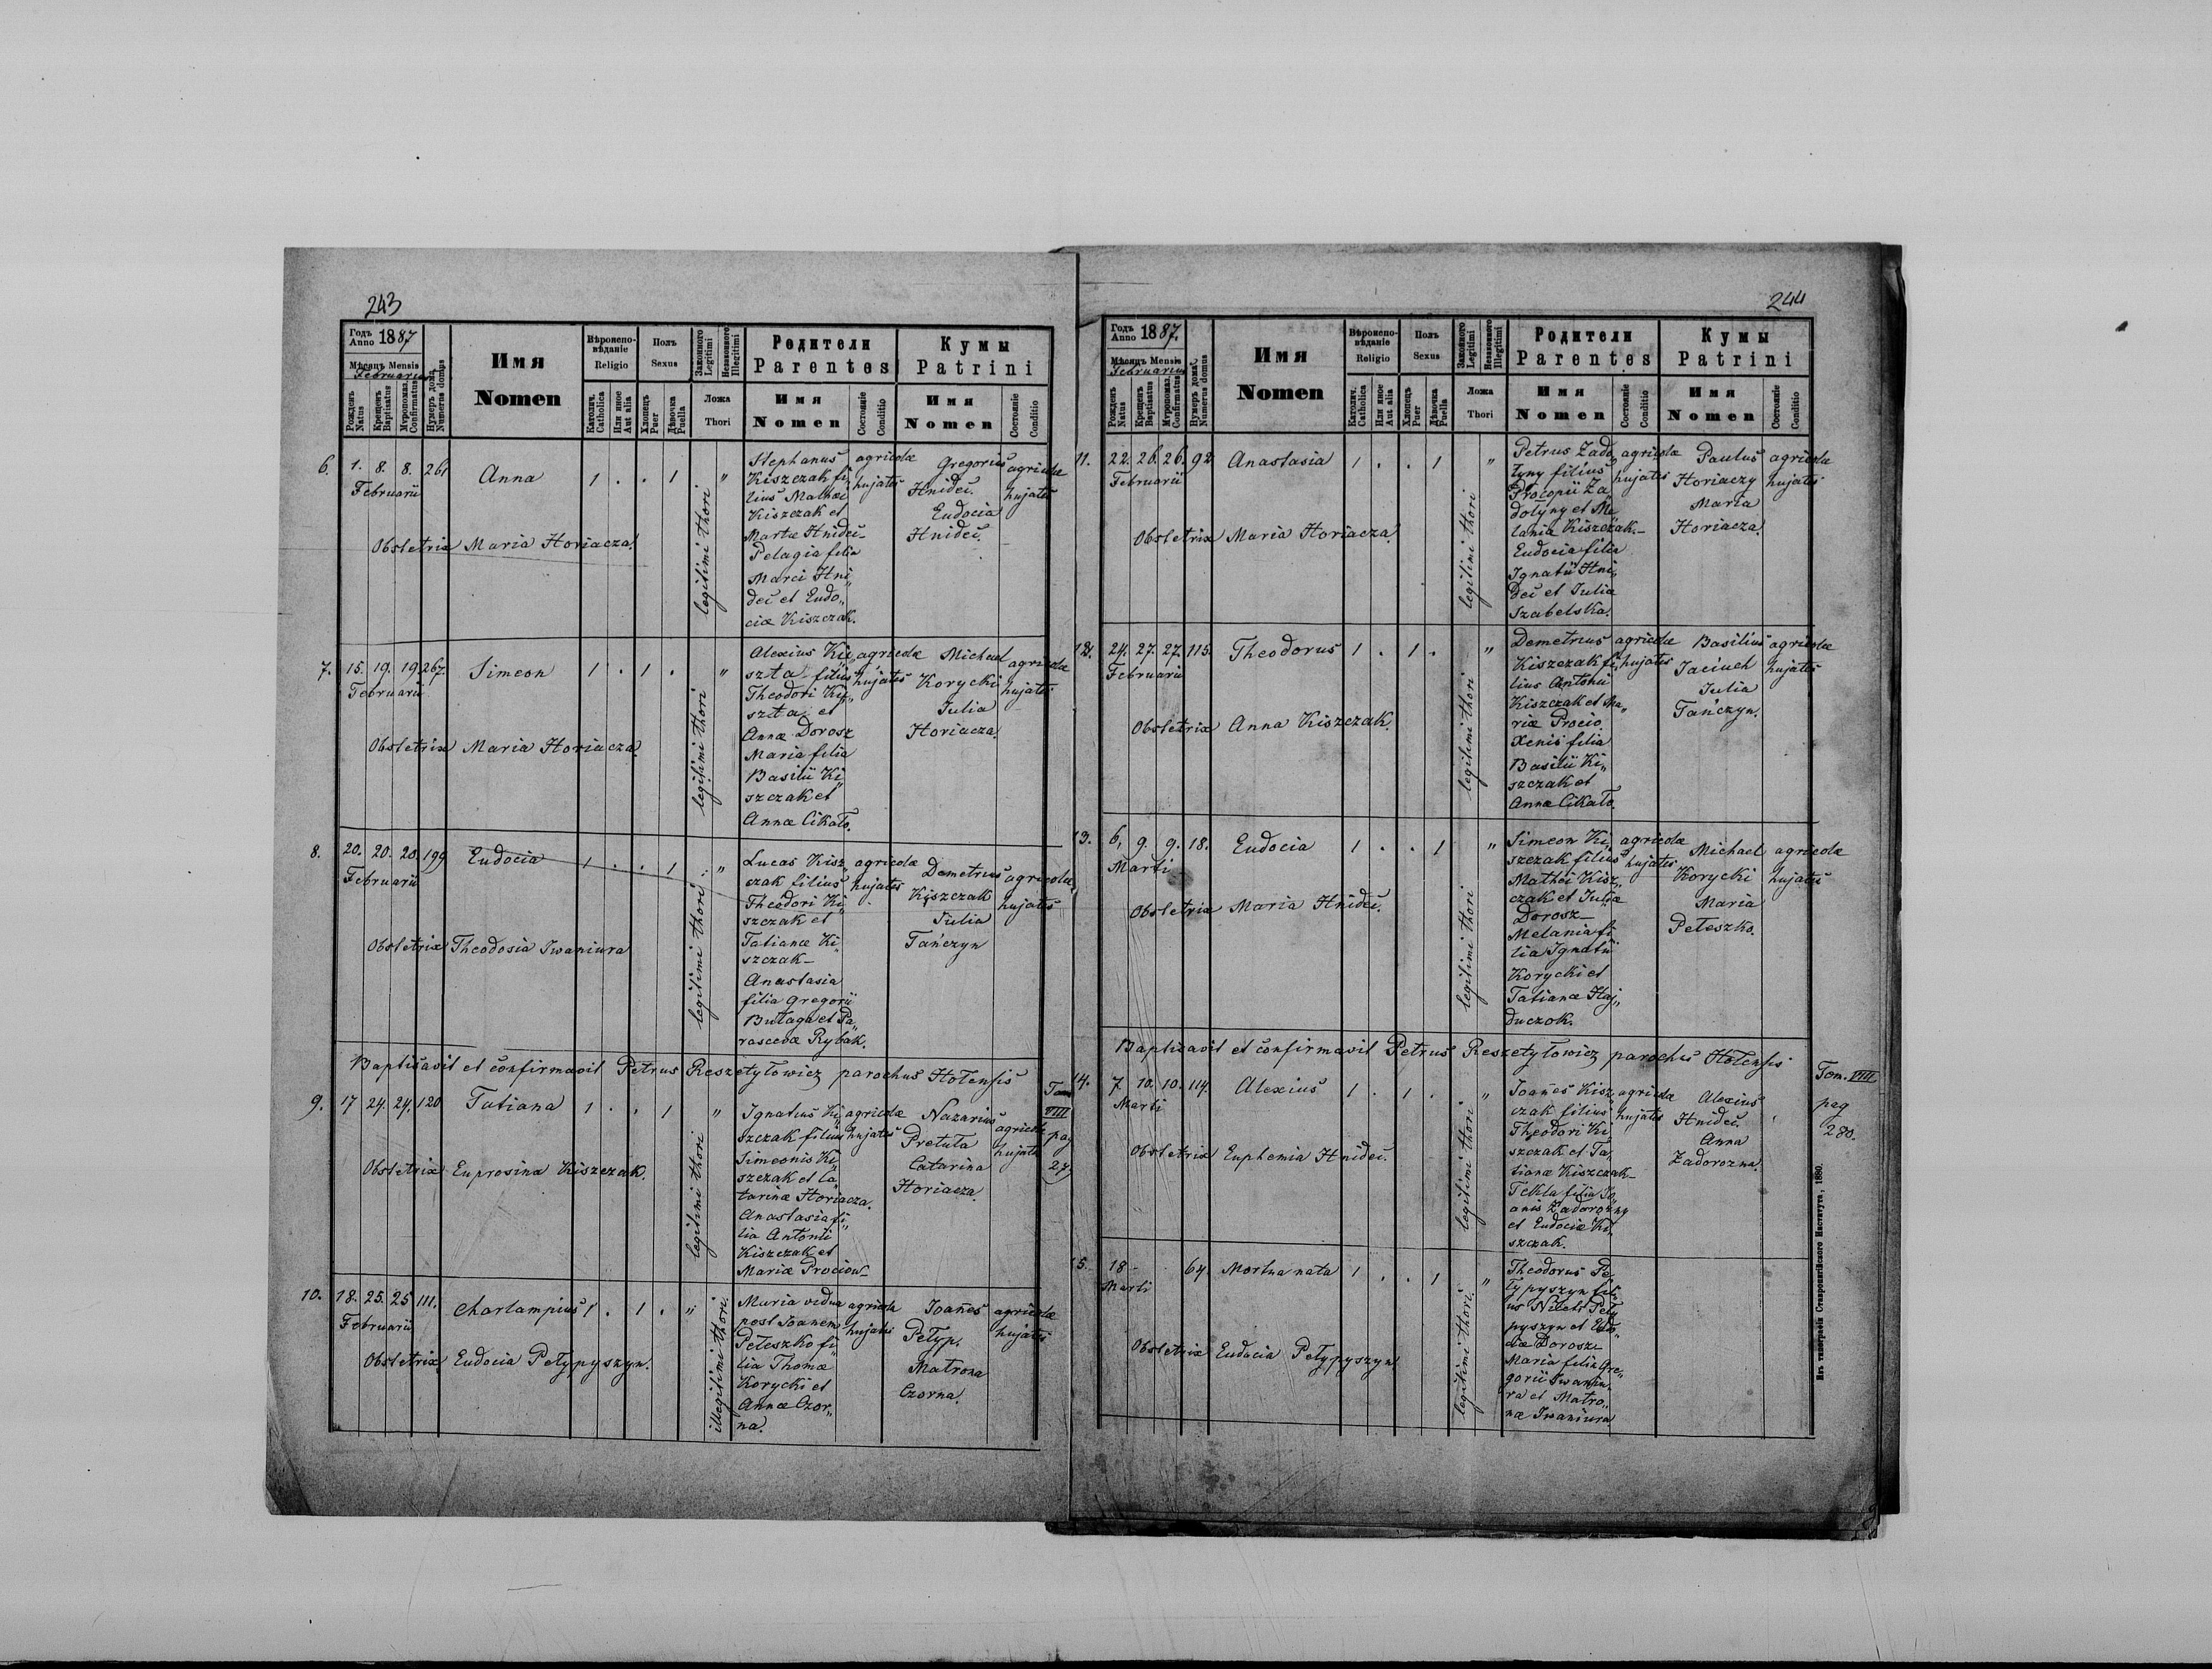 243
Годъ Anno 1887
Мѣсяцъ Mensis
Februarius
Рожденъ Natus
Крещенъ Baptisatus
Муропомаз. Confirmatus
Нумеръ дома Numerus domus
Имя
Nomen
Вѣроиспо-
вѣданіе
Religio
Католич. Catholica
Или иное Aut alia
Полъ
Sexus
Хлопецъ Puer
Дѣвочка Puella
Законного Legitimi
Незаконного Illegitimi
Ложа
Thori
Родители
Parentes
Имя
Nomen
Состояніе
Conditio
Кумы
Patrini
Имя
Nomen
Состояніе
Conditio
6. 1. 8. 8. 261 Anna 1 . . 1 "
Februarii
Obstetrix Maria Horiacza.
legitimi thori
Stephanus
Kiszczak fi„
lius Mathæi
Kiszczak et
Martæ Hnideć-
Pelagia filia
Marci Hni„
deć et Eudo„
ciæ Kiszczak.
agricolæ
hujates
Gregorius
Hnideć.
Eudocia
Hnideć.
agricolæ
hujates
7. 15. 19. 19. 267. Simeon 1 . 1 . "
Februarii
Obstetrix Maria Horiacza.
legitimi thori
Alexius Ki„
szta filius
Theodori Ki„
szta et
Annæ Dorosz
Maria filia
Basilii Ki„
szczak et
Annæ Cikało.
agricolæ
hujates
Michael
Korycki
Julia
Horiacza.
agricolæ
hujates
8. 20. 20. 20. 199 Eudocia 1 . . 1 "
Februarii
Obstetrix Theodosia Iwaniura
legitimi thori
Lucas Kisz„
czak filius
Theodori Ki„
szczak et
Tatianæ Ki„
szczak-
Anastasia
filia Gregorii
Butaga et Pa„
rascevæ Rybak.
agricolæ
hujates
Demetrius
Kiszczak
Julia
Tańczyn
agricolæ
hujates
Baptisavit et confirmavit Petrus Reszetyłowicz parochus Hołensis
9. 17 24. 24. 120 Tatiana 1 . . 1 "
Obstetrix Euprosina Kiszczak.
legitimi thori
Ignatius Ki„
szczak filius
Simeonis Ki„
szczak et Ca„
tarinæ Horiacza.
Anastasia fi„
lia Antonii
Kiszczak et
Mariæ Prociow-
agricolæ
hujates
Nazarius
Pretuła
Catarina
Horiacza.
agricolæ
hujates
Tom
VIII
pag
10. 18. 25. 25 111. Charlampius 1 . 1 . "
Februarii
Obstetrix Eudocia Pełypyszyn.
illegitimi thori.
Maria vidua
post Joanem
Peleszko fi„
lia Thomæ
Korycki et
Annæ Czor„
na.
agricola
hujates
Joañes
Pełyp.
Matrona
Czorna.
agricolæ
hujates
244
Годъ Anno 1887.
Мѣсяцъ Mensis
Februarius
Рожденъ Natus
Крещенъ Baptisatus
Муропомаз. Confirmatus
Нумеръ дома Numerus domus
Имя
Nomen
Вѣроиспо-
вѣданіе
Religio
Католич. Catholica
Или иное Aut alia
Полъ
Sexus
Хлопецъ Puer
Дѣвочка Puella
Законного Legitimi
Незаконного Illegitimi
Ложа
Thori
Родители
Parentes
Имя
Nomen
Состояніе
Conditio
Кумы
Patrini
Имя
Nomen
Состояніе
Conditio
11. 22. 26. 26. 92 Anastasia 1 . . 1 "
Februarii
Obstetrix Maria Horiacza.
legitimi thori
Petrus Zado„
tyny filius
Procopii Za„
dotyny et Me„
lania Kiszczak.-
Eudocia filia
Ignatii Hni„
deć et Julia
Szabelska.
agricolæ
hujates
Paulus
Horiaczy
Maria
Horiacza.
agricolæ
hujates
12. 24. 27. 27. 115. Theodorus 1 . 1 . "
Februarii
Obstetrix Anna Kiszczak.
legitimi thori
Demetrius
Kiszczak fi„
lius Antonii
Kiszczak et Ma„
riæ Procio
Xenis filia
Basilii Ki„
szczak et
Annæ Cikało.
agricolæ
hujates
Basilius
Jaciuch
Julia
Tańczyn.
agricolæ
hujates
13. 6. 9. 9. 18. Eudocia 1 . . 1 "
Marti
Obstetrix Maria Hnideć.
legitimi thori
Simeon Ki„
szczak filius
Mathei Kisz„
czak et Juliæ
Dorosz-
Melania fi
lia Ignatii
Korycki et
Tatianæ Haj„
duczok.
agricolæ
hujates
Michael
Korycki
Maria
Peleszko.
agricolæ
hujates
Baptisavit et confirmavit Petrus Reszetyłowicz parochus Hołensis
14. 7 10. 10. 114. Alexius 1 . 1 . "
Marti
Obstetrix Euphemia Hnideć.
legitimi thori
Joañes Kisz„
czak filius
Theodori Ki„
szczak et Ta„
tianæ Kiszczak-
Tekla filia Jo„
anis Zadorożny
et Eudociæ Ki„
szczak.
agricolæ
hujates
Alexius
Hnideć.
Anna
Zadorozna.
Tom. VIII
pag
280.
15. 18- 64. Mortua nata 1 . . 1 "
Marti
Obstetrix Eudocia Pełypyszyn
legitimi thori.
Theodorus Pe„
łypyszyn fili„
us Nicetæ Peły„
pyszyn et Eudo„
ciæ Dorosz
Maria filia Gre„
gorii Iwaniu„
ra et Matro„
næ Iwaniura
Изъ типографіи Ставропигійского Института, 1880.